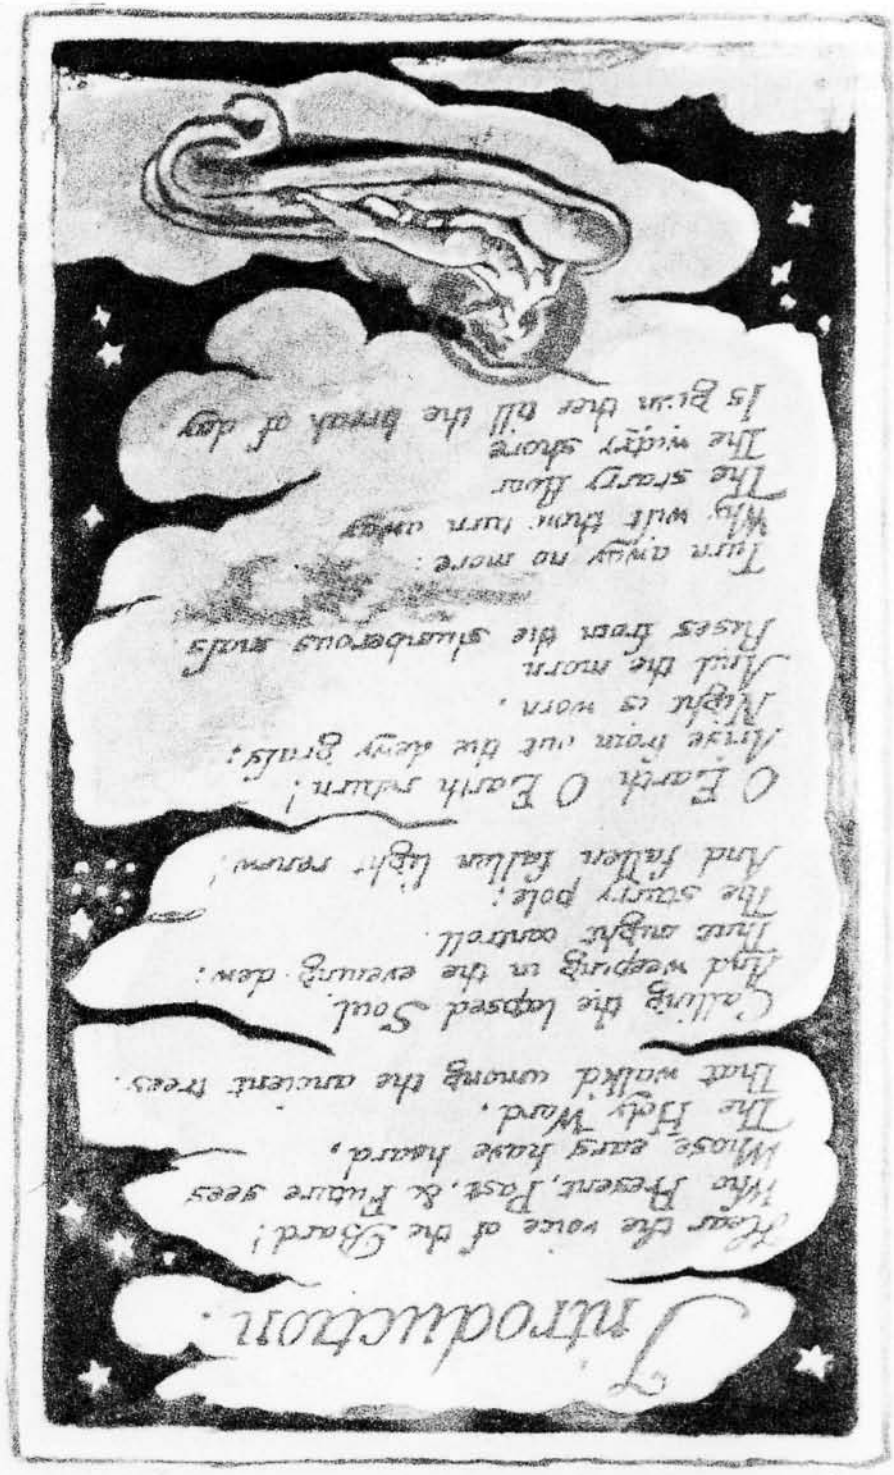 Introduction.
Hear the voice of the Bard!
Who Present, Past, & Future sees
Whose ears have heard,
The Holy Word,
That walk'd among the ancient trees.
Calling the lapsed Soul
And weeping in the evening dew:
That might controll
The starry pole;
And fallen fallen light renew!
O Earth O Earth return!
Arise from out the dewy grass;
Night is worn,
And the morn
Rises from the slumberous mass
Turn away no more:
Why wilt thou turn away
The starry floor
The watry shore
Is giv'n thee till the break of day